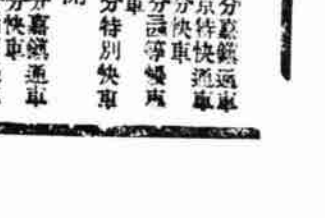 分嘉鎮通車
京特快通車
分快車
分三等慢車
車
分特別快車
分嘉鎮通車
分快車